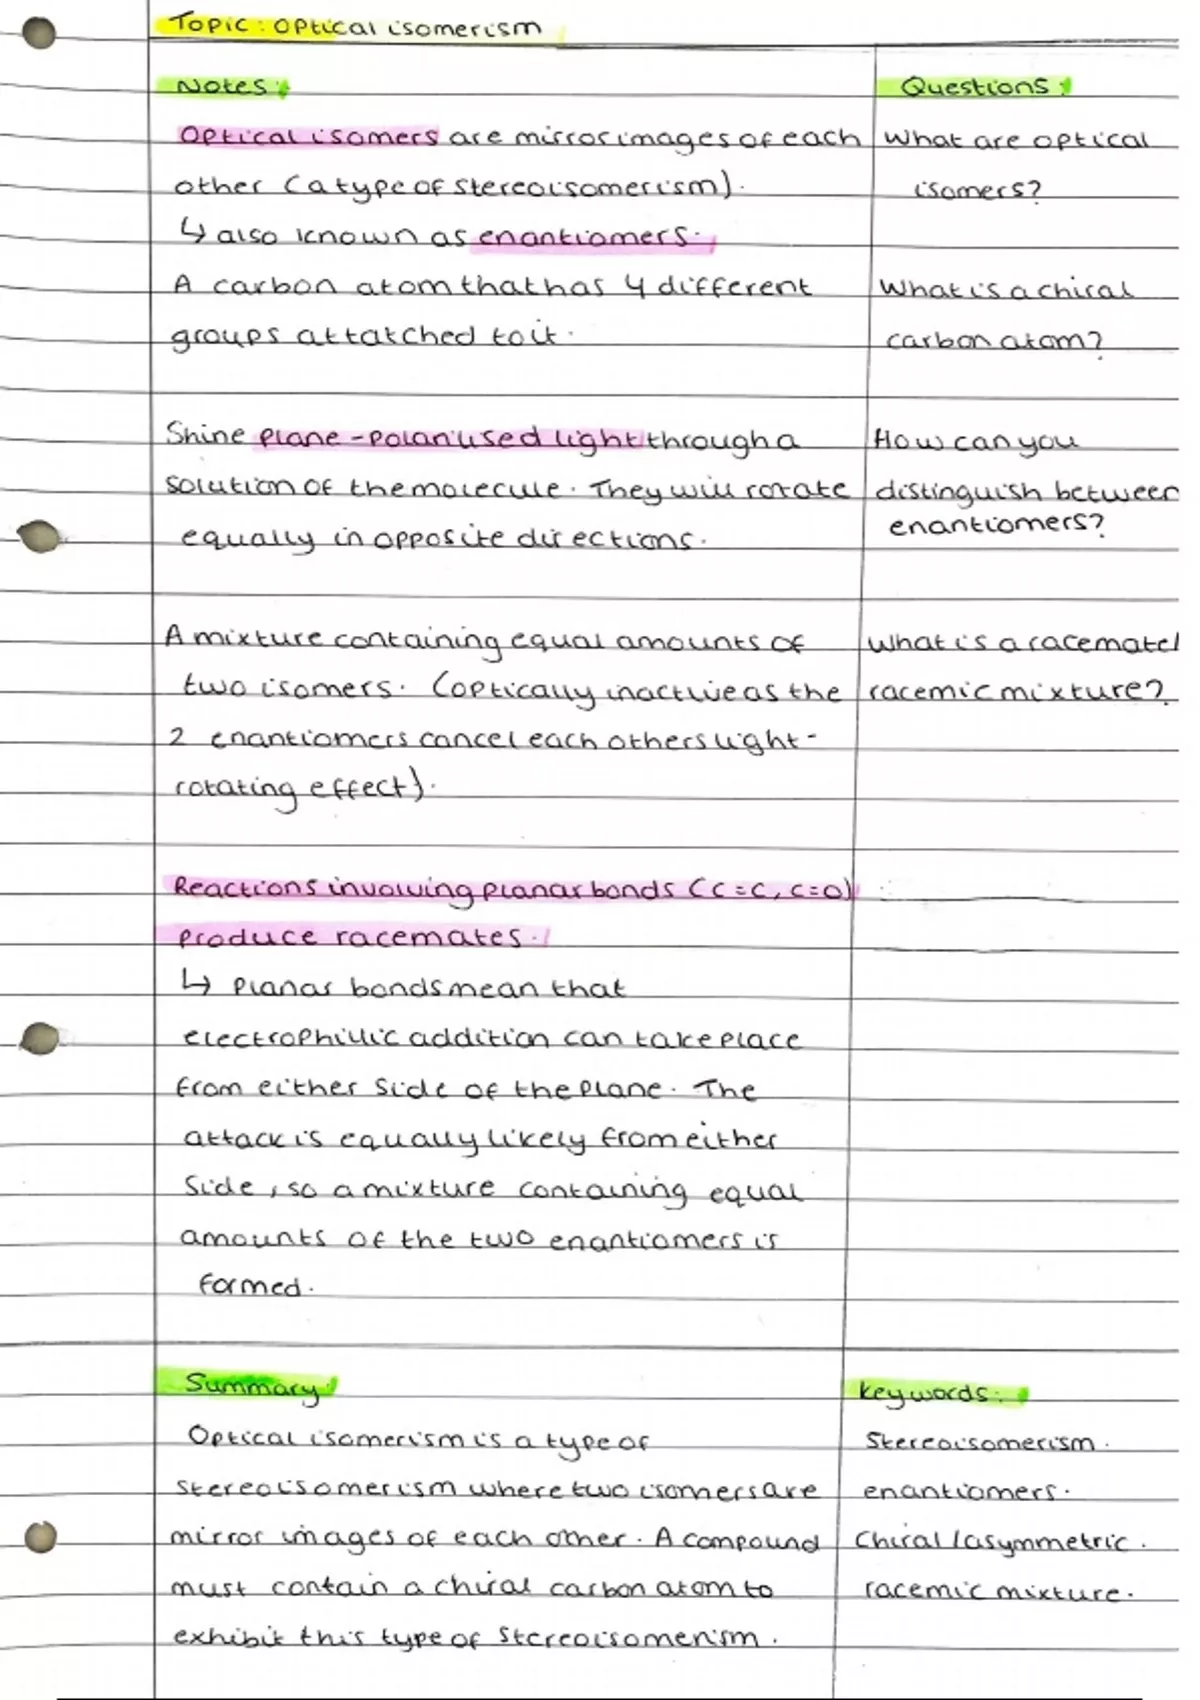 Topic: Optical isomerism
Notes:
Optical isomers are mirror images of each
other (a type of stereoisomerism).
↳ also known as enantiomers.
A carbon atom that has 4 different
groups attatched to it.
Shine plane-polarised light through a
solution of the molecule. They will rotate
equally in opposite directions.
A mixture containing equal amounts of
two isomers. (optically inactive as the
2 enantiomers cancel each others light-
rotating effect).
Reactions involving planar bonds (C=C, C=O)
produce racemates.
↳ Planar bonds mean that
electrophillic addition can take place
from either side of the plane. The
attack is equally likely from either
side, so a mixture containing equal
amounts of the two enantiomers is
formed.
Questions:
What are optical
isomers?
What is a chiral
carbon atom?
How can you
distinguish between
enantiomers?
What is a racemate/
racemic mixture?
Summary:
Optical isomerism is a type of
stereoisomerism where two isomers are
mirror images of each other. A compound
must contain a chiral carbon atom to
exhibit this type of stereoisomerism.
Keywords:
Stereoisomerism.
enantiomers.
Chiral/asymmetric.
racemic mixture.